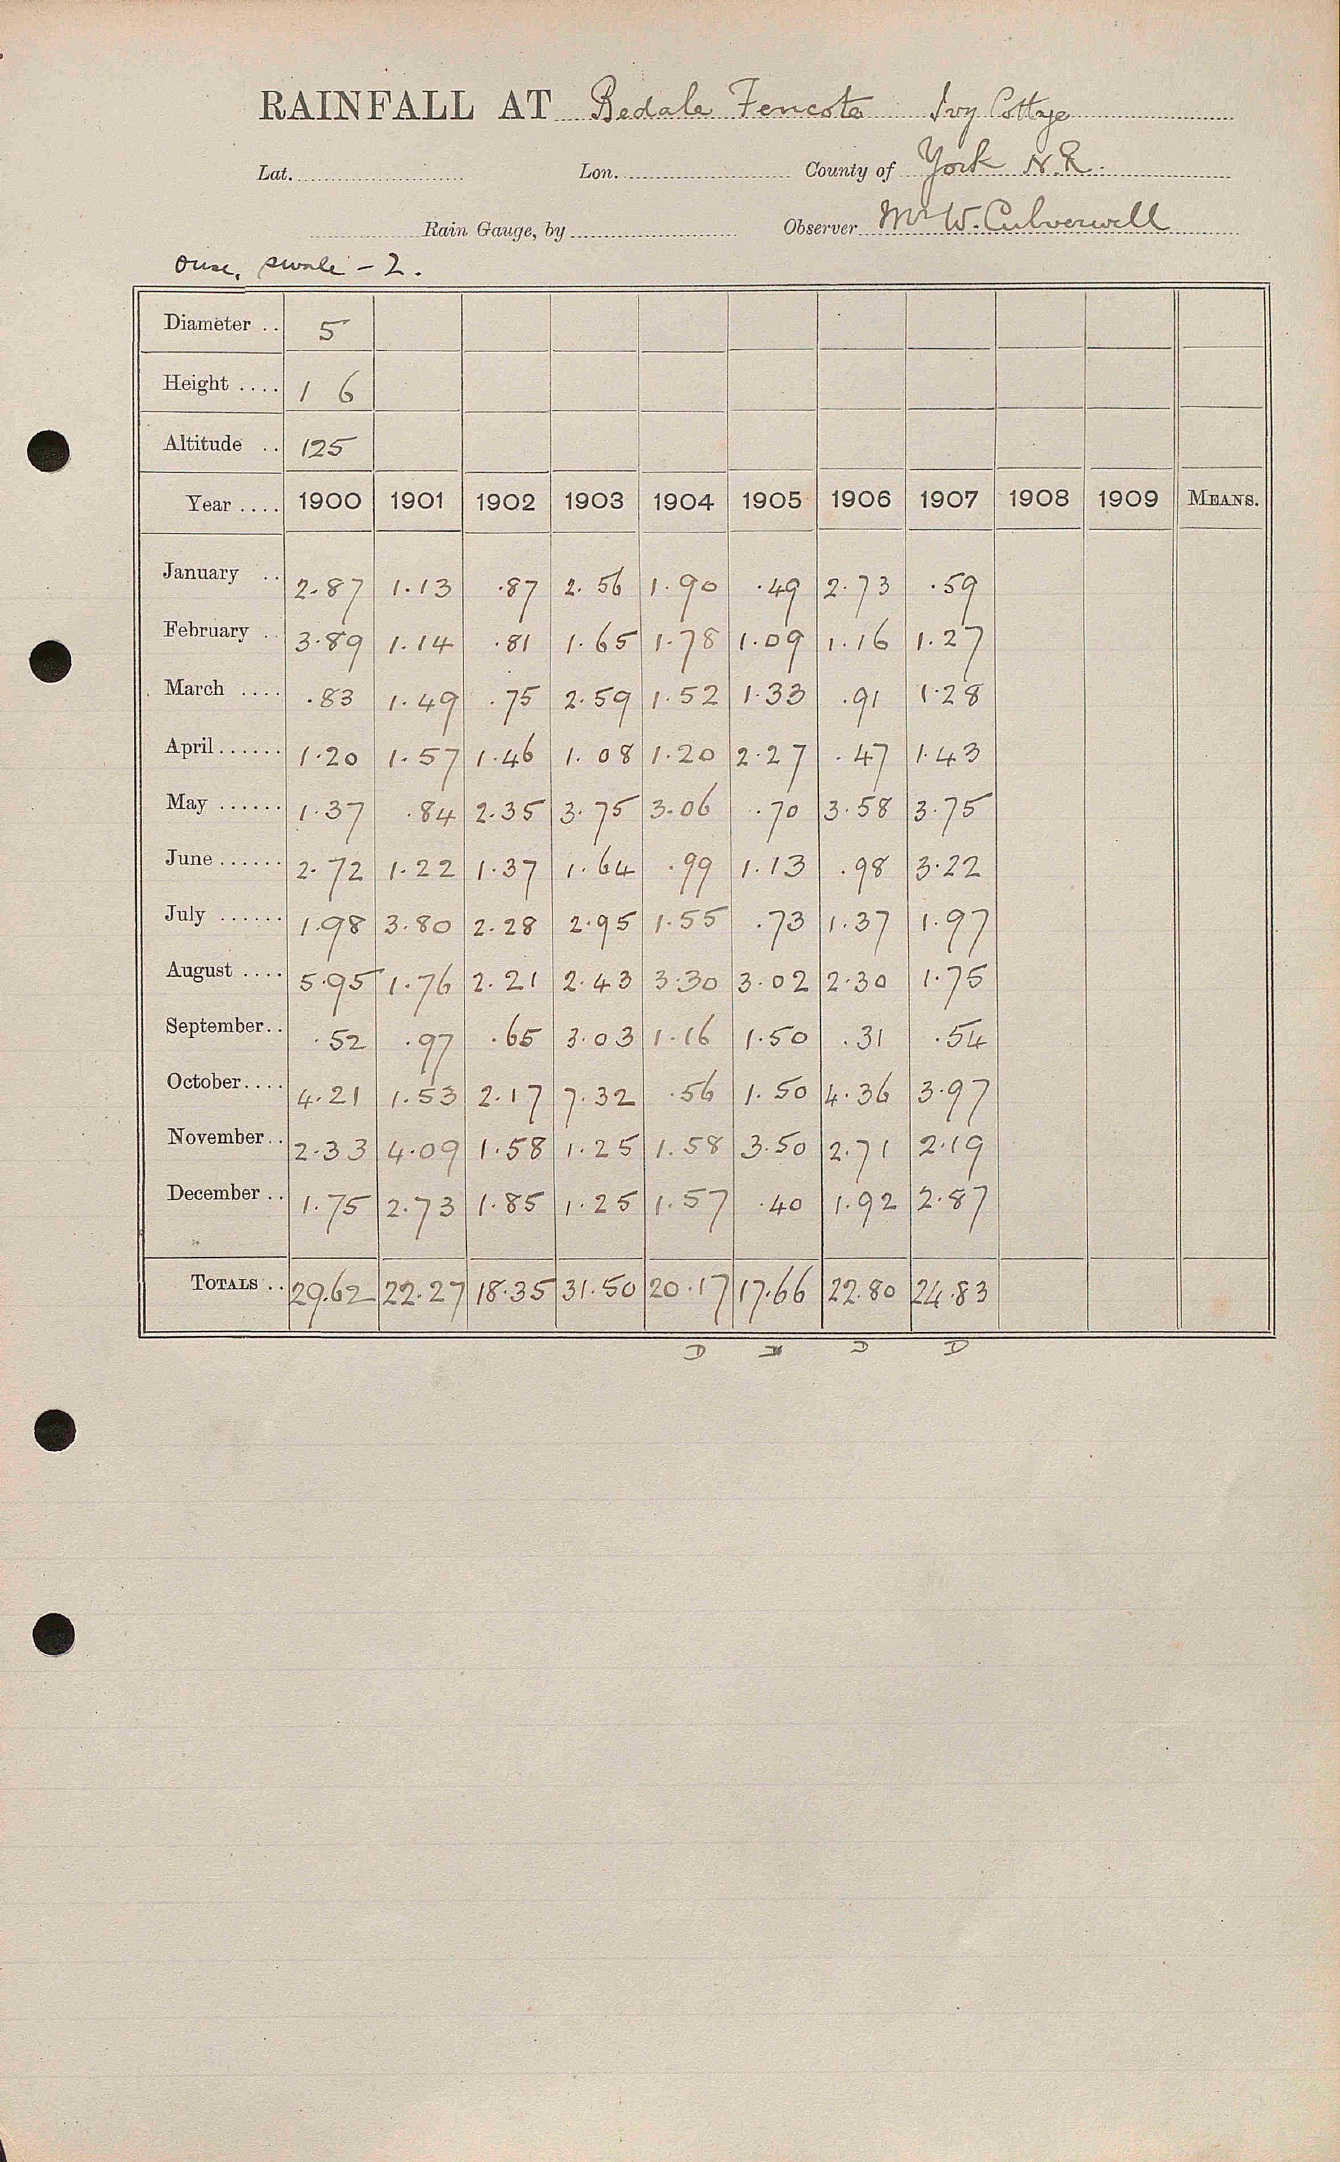 RAINFALL AT Bedale Fencote Ivy Cottage
Lat. Lon. County of York N.R.
Rain Gauge, by Observer Mr W. Culverwell
Ouse, Swale - 2.
Diameter .. 5
Height .... 1 6
Altitude .. 125
Year .... 1900 1901 1902 1903 1904 1905 1906 1907 1908 1909 MEANS.
January .. 2.87 1.13 .87 2.56 1.90 .49 2.73 .59
February .. 3.89 1.14 .81 1.65 1.78 1.09 1.16 1.27
March .... .83 1.49 .75 2.59 1.52 1.33 .91 1.28
April ...... 1.20 1.57 1.46 1.08 1.20 2.27 .47 1.43
May ...... 1.37 .84 2.35 3.75 3.06 .70 3.58 3.75
June ...... 2.72 1.22 1.37 1.64 .99 1.13 .98 3.22
July ...... 1.98 3.80 2.28 2.95 1.55 .73 1.37 1.97
August .... 5.95 1.76 2.21 2.43 3.30 3.02 2.30 1.75
September .. .52 .97 .65 3.03 1.16 1.50 .31 .54
October .... 4.21 1.53 2.17 7.32 .56 1.50 4.36 3.97
November .. 2.33 4.09 1.58 1.25 1.58 3.50 2.71 2.19
December .. 1.75 2.73 1.85 1.25 1.57 .40 1.92 2.87
TOTALS .. 29.62 22.27 18.35 31.50 20.17 17.66 22.80 24.83
D D D